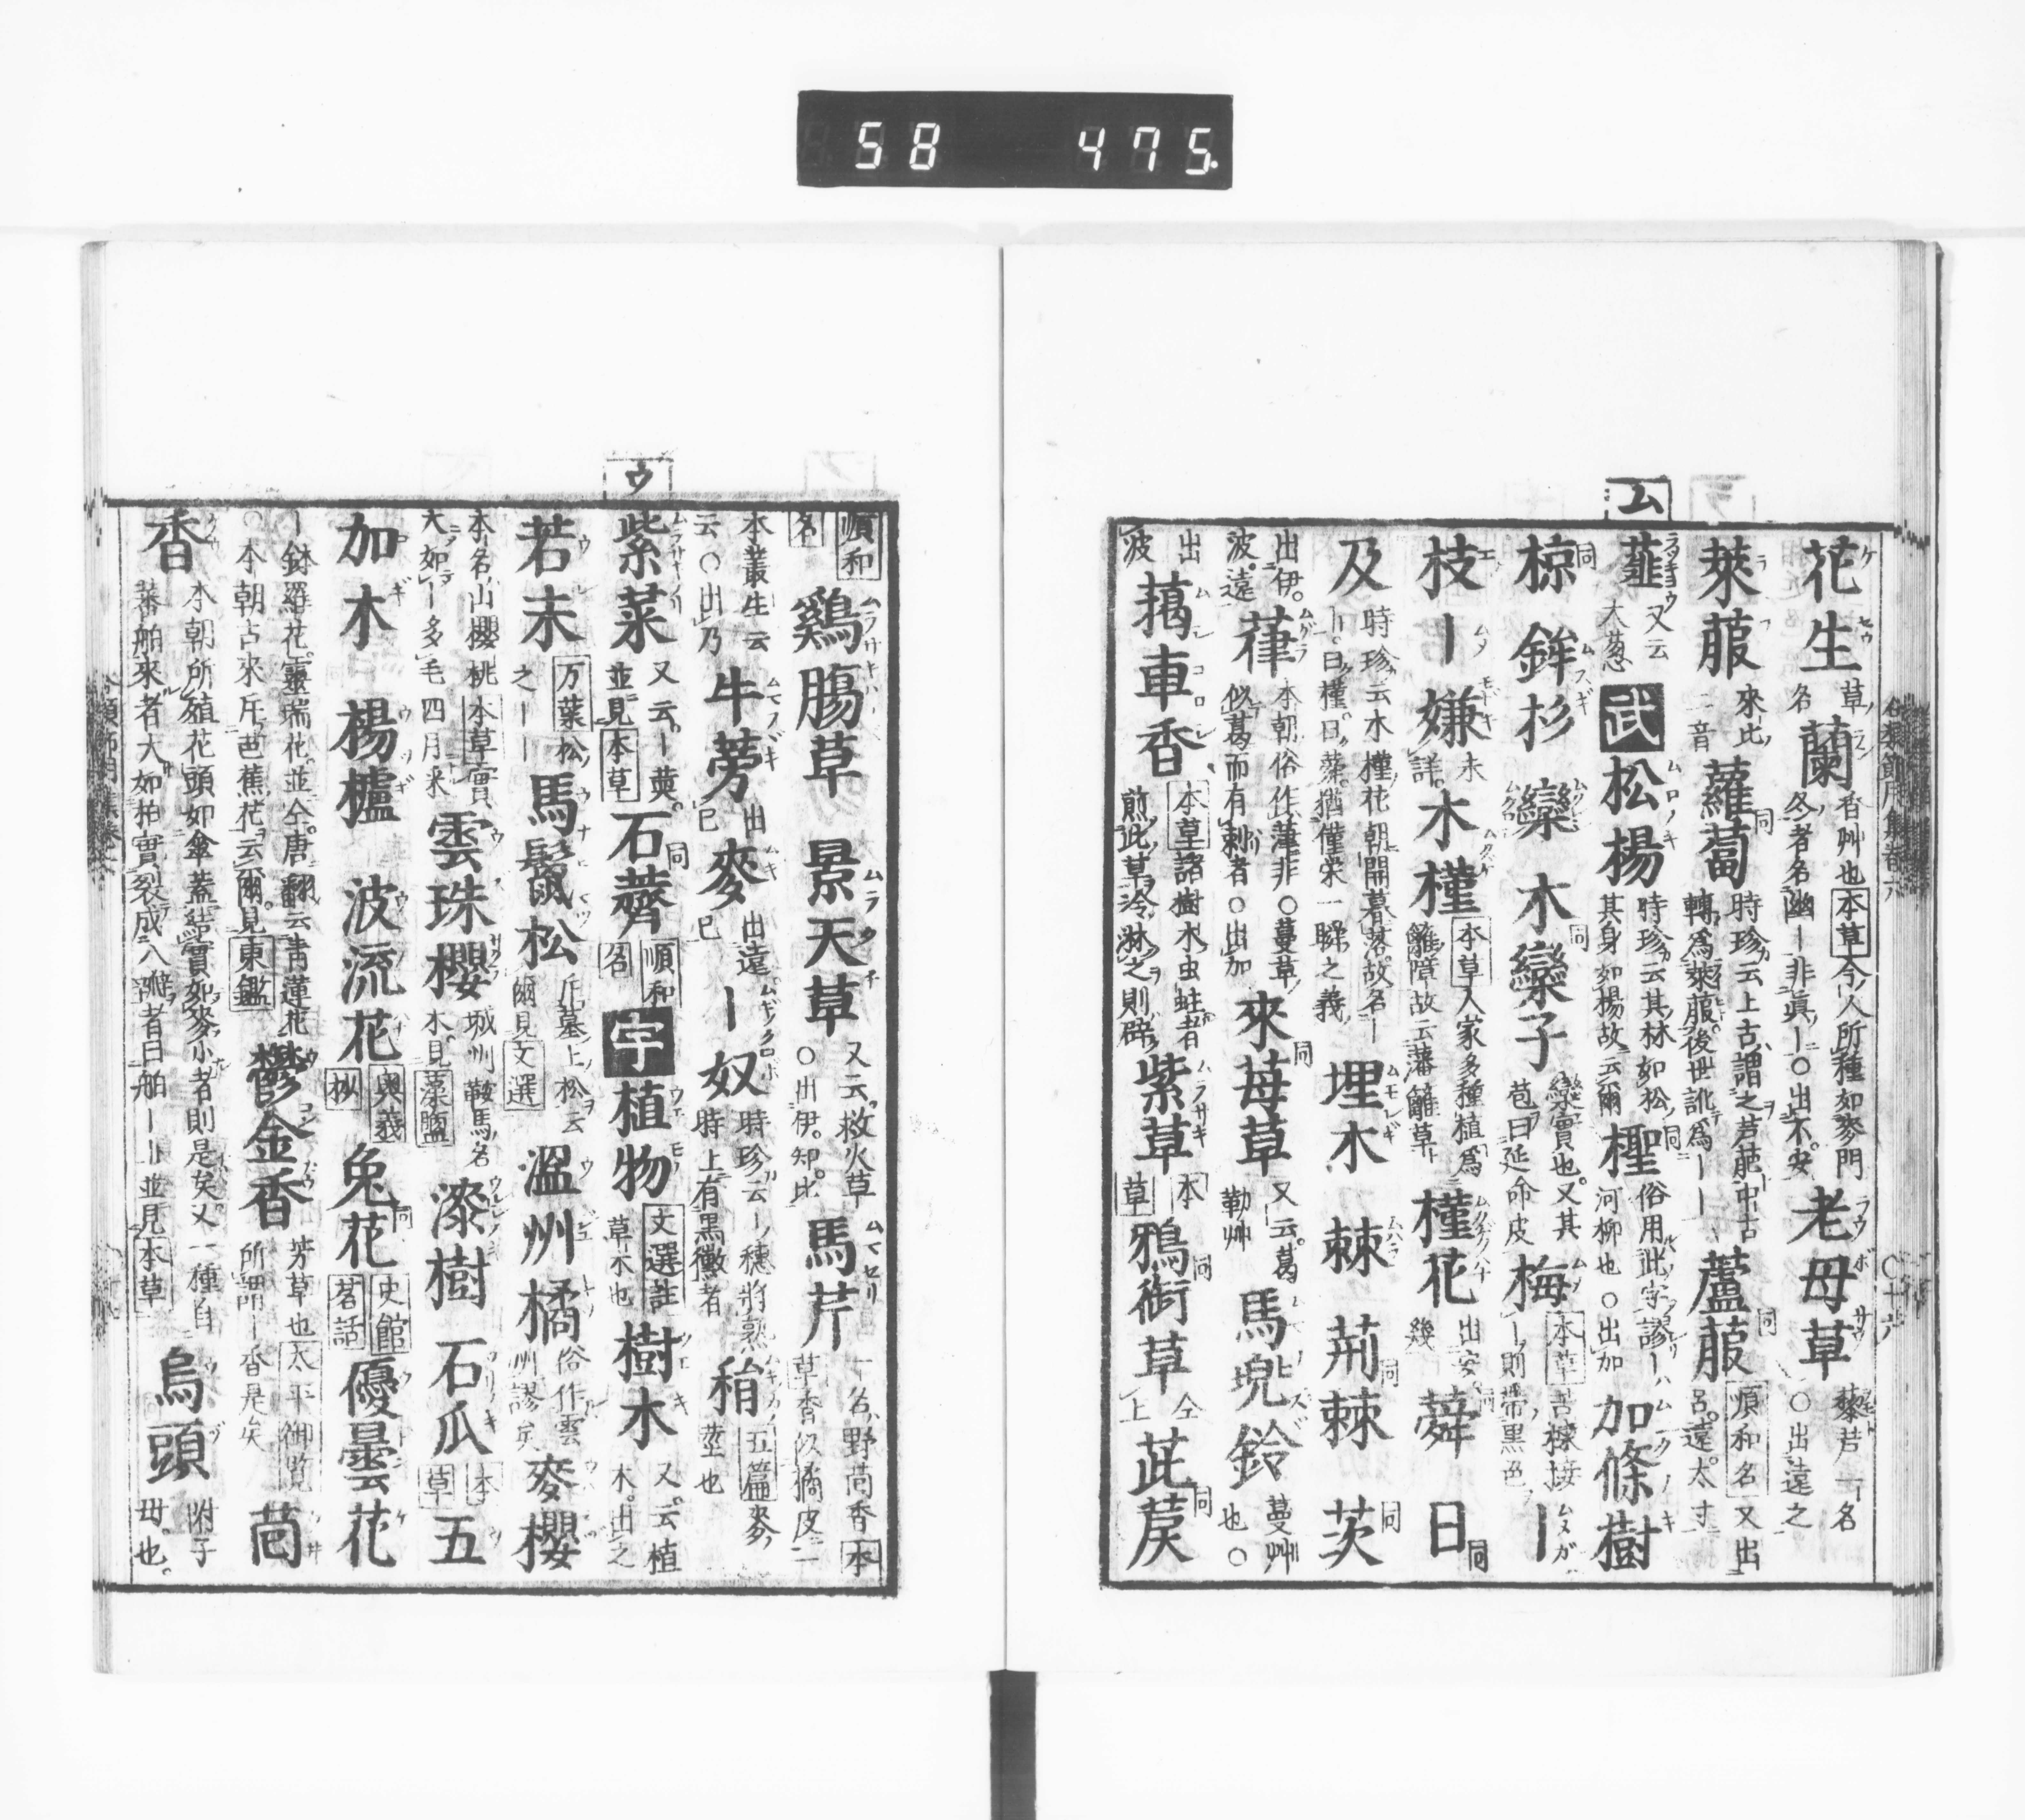 58 475
ム
花生草名蘭香艸也本草今人所種如麥門冬者名幽ー非眞ー○出不安老母草藜芦一名○出遠之
萊菔來比二音蘿蔔同時珍云上古謂之芦萉中古轉爲萊菔後世訛爲ーー蘆菔同順和名又出呂遠太寸
薤又云大葱武松楊時珍云其材如松其身如楊故云爾檉同俗用此字謬ーハ河柳也○出加加條樹
椋同鉾杉欒木欒子同欒實也又其苞曰延命皮梅本草ー則帶黑色ー
枝ー嫌未詳木槿本草人家多種植爲籬障故云藩籬草槿花出安幾蕣同日同
及時珍云木槿花朝開暮落故名ー曰槿曰蕣猶僅榮一瞬之義埋木棘荊棘同茨同
出伊波遠葎本朝俗作葎非○蔓草似葛而有刺者○出加來莓草同又云葛勒艸馬兜鈴蔓艸也○
出波藒車香本草諸樹木虫蛀者煎此草冷淋之則辟紫草本草鴉銜草同仝上茈䓞同
ウ
順和名鷄腸草景天草又云救火草○出伊知比馬芹一名野茴香本草香似橘皮二
本叢生云云○出乃牛蒡出巳麥出遠巳ー奴時珍云ー穗將熟時上有黑黴者䅌五篇麥莖也
紫菜又云ー䓲並見本草石薺同順和名宇植物文選註草木也樹木又云植木出之
若末万葉之ーー馬鬣松松斥墓上松云爾見文選溫州橘俗作雲州謬矣麥櫻
本名山櫻桃本草實大如ー多毛四月来雲珠櫻城州鞍馬名木見藻鹽漆樹石瓜本草五
加木楊櫨波流花奥義抄兔花同史館茗話優曇花
ー鉢羅花靈瑞花並仝唐翻云靑蓮花○本朝古來斥芭蕉花云爾見東鑑鬱金香芳草也太平御覧所謂ー香是矣茴
香本朝所殖花頭如傘蓋結實如麥小者則是矣又一種自蕃舶來者大如柏實裂成八瓣者曰舶ーー並見本草烏頭附子毌也